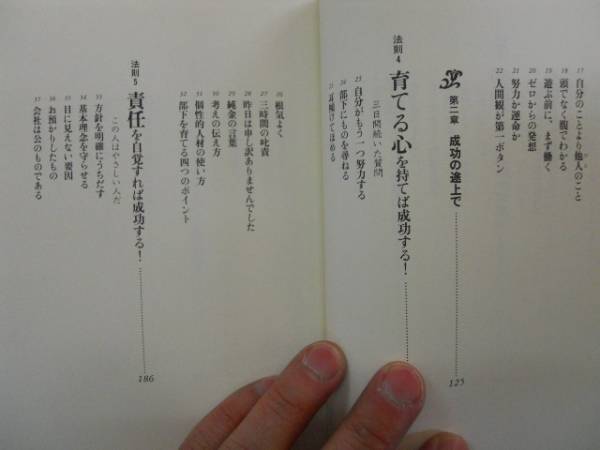 17 自分のことより他人のこと
18 頭でなく腹でわかる
19 遊ぶ前に、まず働く
20 ゼロからの発想
21 努力か運命か
22 人間観が第一ボタン
第二章 成功の途上で 125
法則4 育てる心を持てば成功する!
三日間続いた質問
23 自分がもう一つ努力する
24 部下にものを尋ねる
25 耳傾けてほめる
26 根気よく
27 三時間の叱責
28 昨日は申し訳ありませんでした
29 純金の言葉
30 考えの伝え方
31 個性的人材の使い方
32 部下を育てる四つのポイント
法則5 責任を自覚すれば成功する! 186
この人はやさしい人だ
33 方針を明確にうちだす
34 基本理念を守らせる
35 目に見えない要因
36 お預かりしたもの
37 会社は公のものである